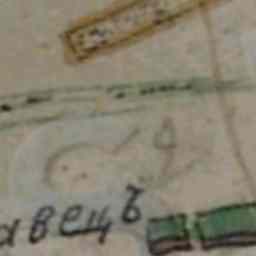 авецъ